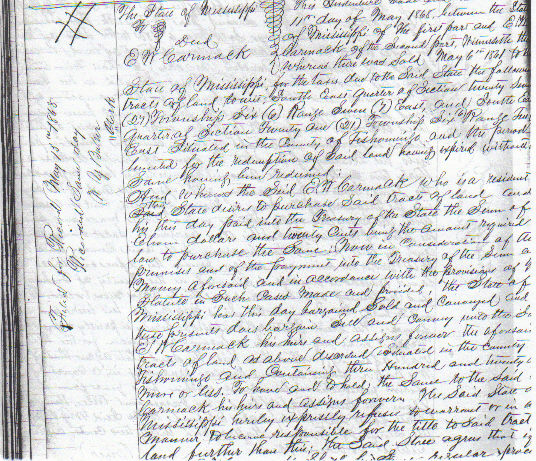 The State of Mississippi
To Deed
E W Carmack
This Indenture made
11th day of May 1868, between the State
of Mississippi of the first part and E W
Carmack of the second part, Witnesseth that
Whereas there was Sold May 6th 1861 to the
State of Mississippi, for the taxes due to the Said State the following
tracts of land, to wit: South East quarter of Section twenty Seven
(27) Township Six (6) Range Seven (7) East, and South East
Quarter of Section Twenty One (21) Township Six Range Seven
East Situated in the County of Tishomingo, and the period
limited for the redemption of Said land having expired without
Same having been redeemed;
And whereas the Said E W Carmack who is a resident
Said State desires to purchase Said tracts of land and
has this day paid into the Treasury of the State the Sum of
Eleven dollars and twenty Cents being the amount required
law to purchase the Same: Now in Consideration of the
premises and of the payment into the Treasury of the Sum
Money aforesaid and in accordance with the provisions of
Statute in Such Cases Made and provided, the State of
Mississippi has this day bargained Sold and Conveyed and
these presents does bargain Sell and Convey unto the Said
E W Carmack his heirs and assigns forever the aforesaid
tracts of land as above described Situated in the County
Tishomingo and Containing three Hundred and twenty
more or less. To have and to hold, the Same to the Said
Carmack his heirs and assigns forever. The Said State of
Mississippi hereby expressly refuses to warrant or in
Manner, to become responsible for the title to Said tract
land further than this: The Said State agrees that
Filed for Record May 15th 1868
Recorded Same day
Clerk